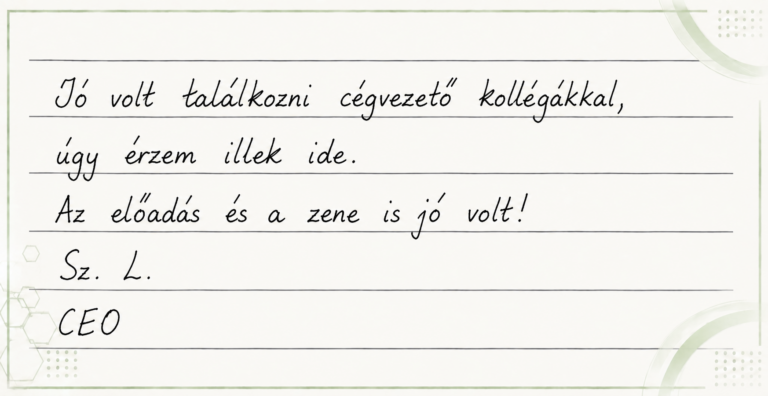 Jó volt találkozni cégvezető kollégákkal,
úgy érzem illek ide.
Az előadás és a zene is jó volt!
Sz. L.
CEO